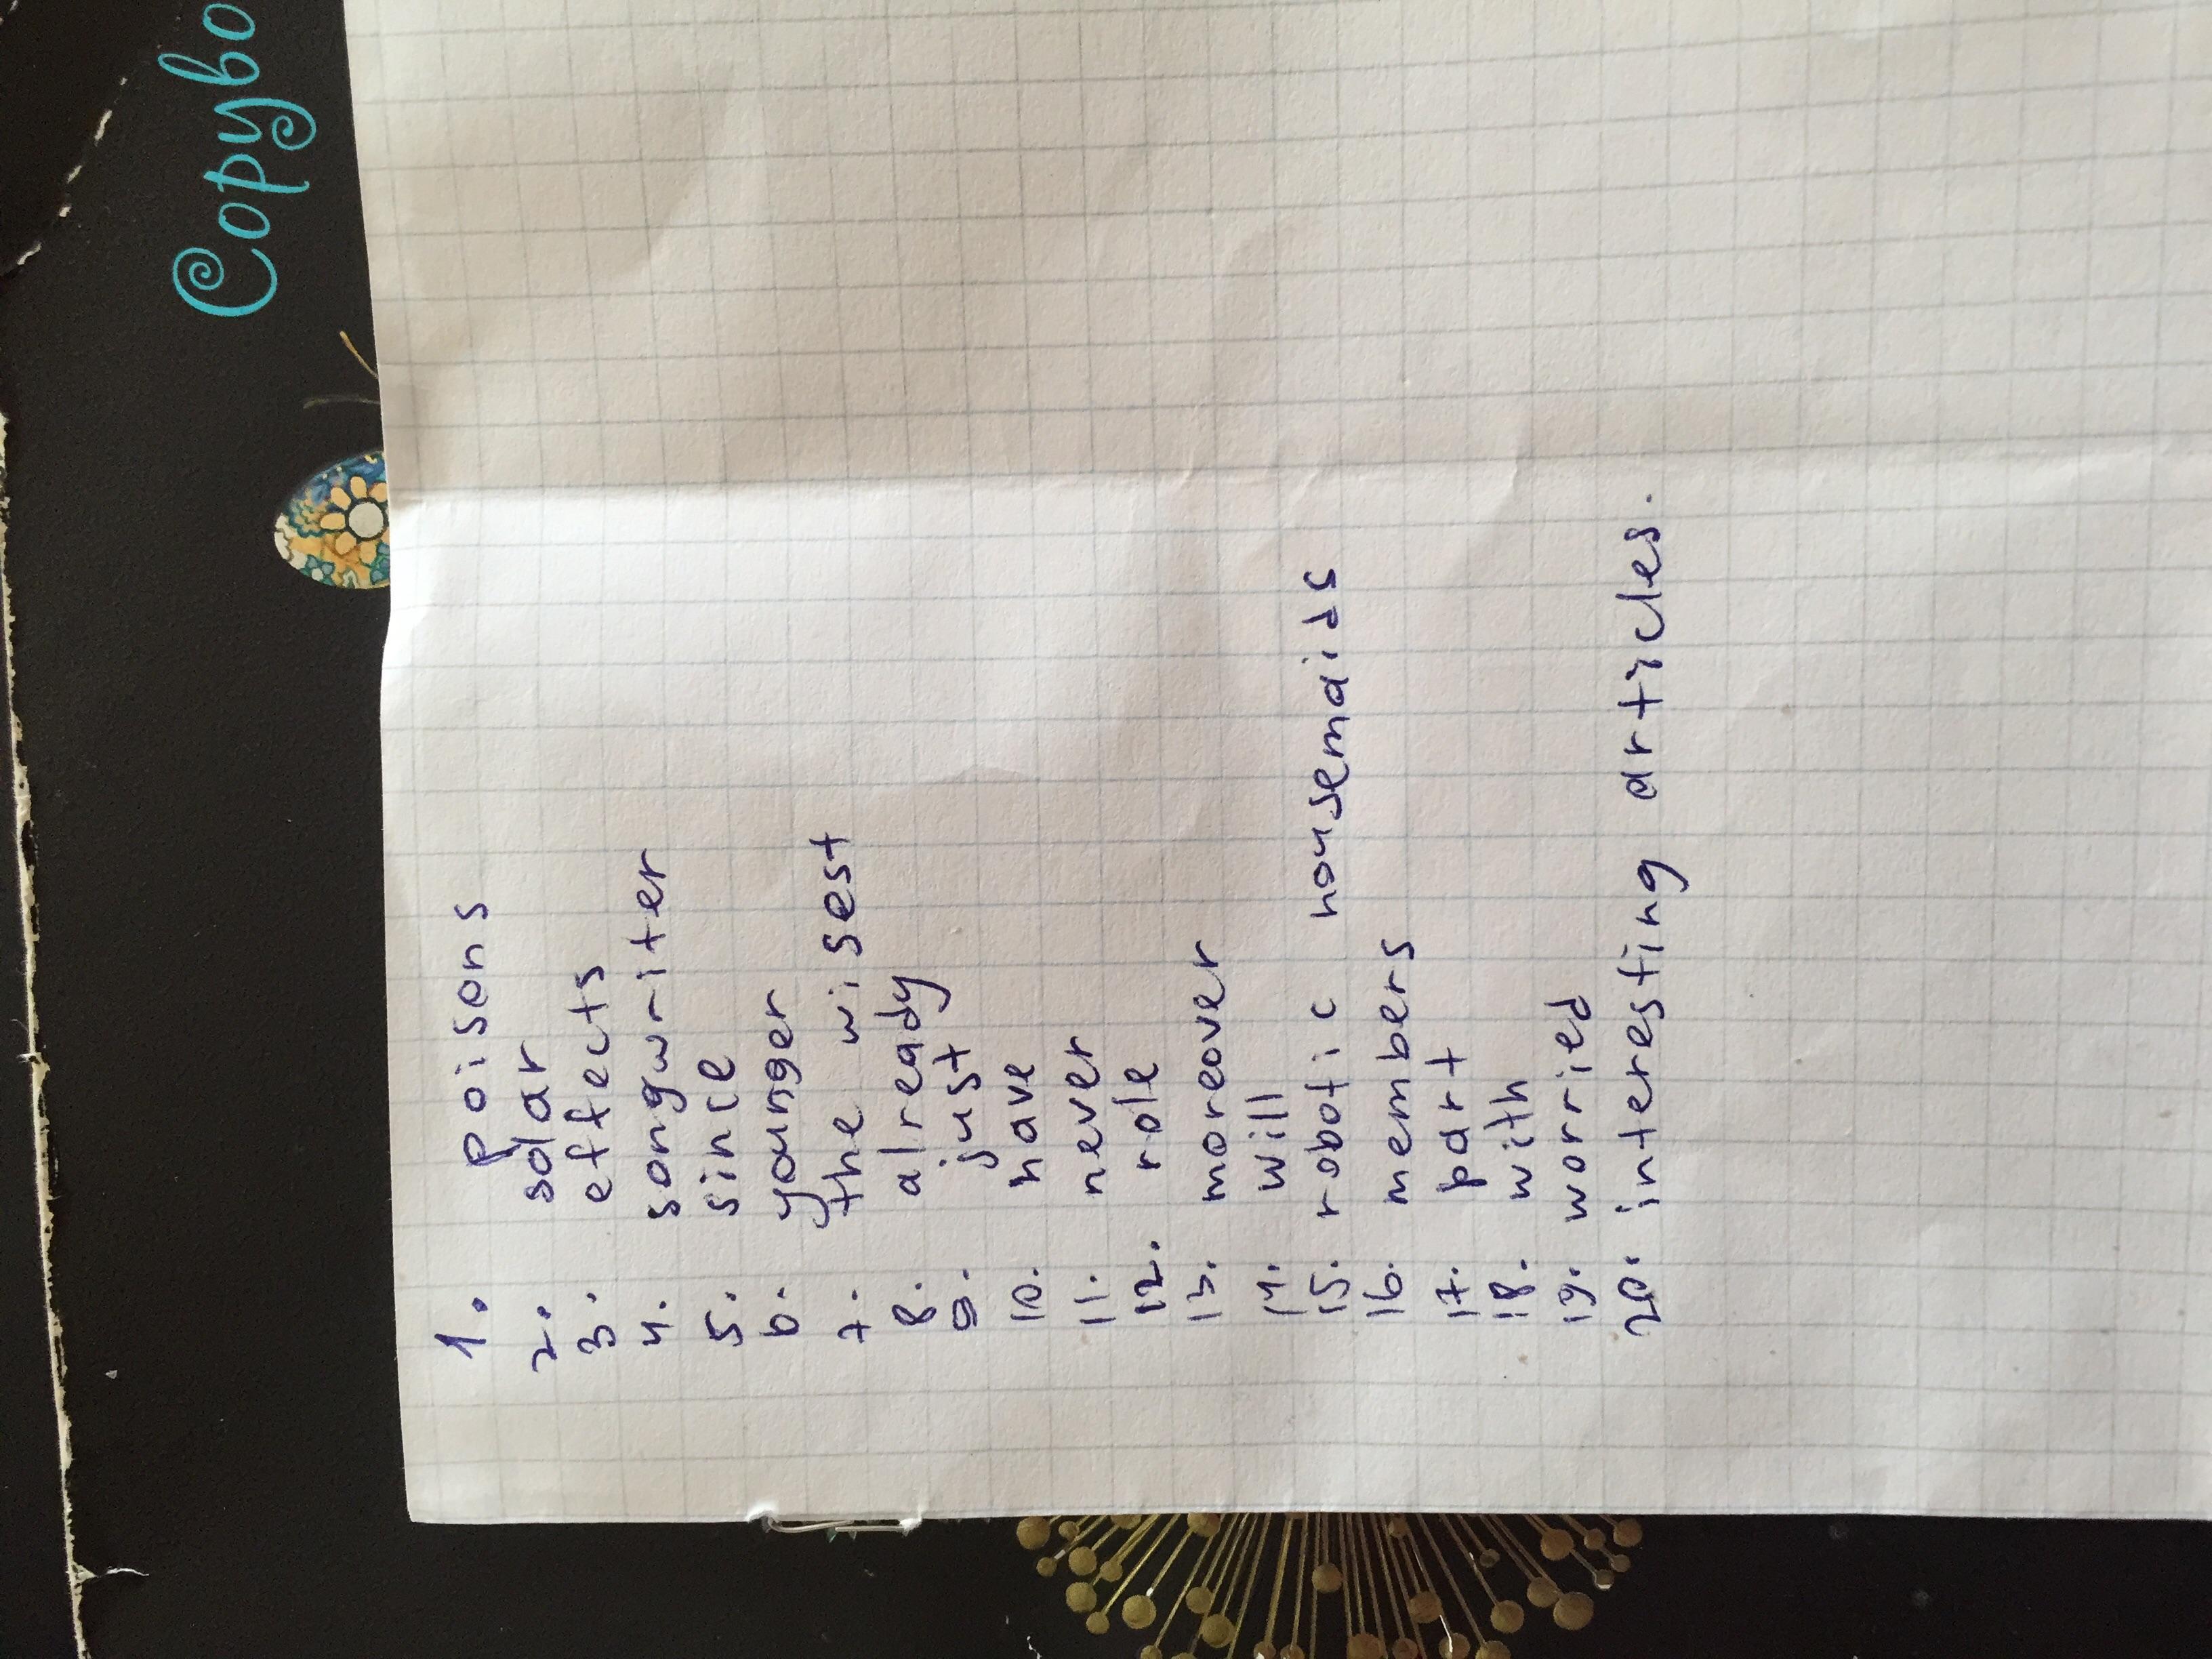 Copybo
1. poisons
2. solar
3. effects
4. songwriter
5. since
6. younger
7. the wisest
8. already
9. just
10. have
11. never
12. role
13. moreover
14. will
15. robotic housemaids
16. members
17. part
18. with
19. worried
20. interesting articles.